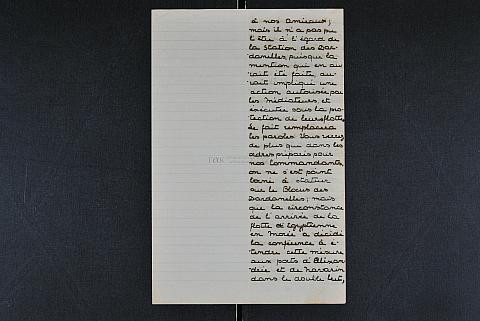 à nos amiraux;
mais il n'a pas pu
l'être à l'égard de
la Station des Dar-
danelles, puisque la
mention qui en au-
rait été faite, au-
rait impliqué une
action autorisée par
les Médiateurs, et
exécutée sous la pro-
tection de leurs flottes
Le fait remplacera
les paroles. Vous verrez
de plus que dans les
ordres préparés pour
nos Commandants,
on ne s'est point
borné à statuer
sur le Blocus des
Dardanelles; mais
que la circonstance
de l'arrivée de la
flotte Egyptienne
en Morée a décidé
la conférence à é-
tendre cette mesure
aux ports d'Alexan-
drie et de Navarin
dans le double but,